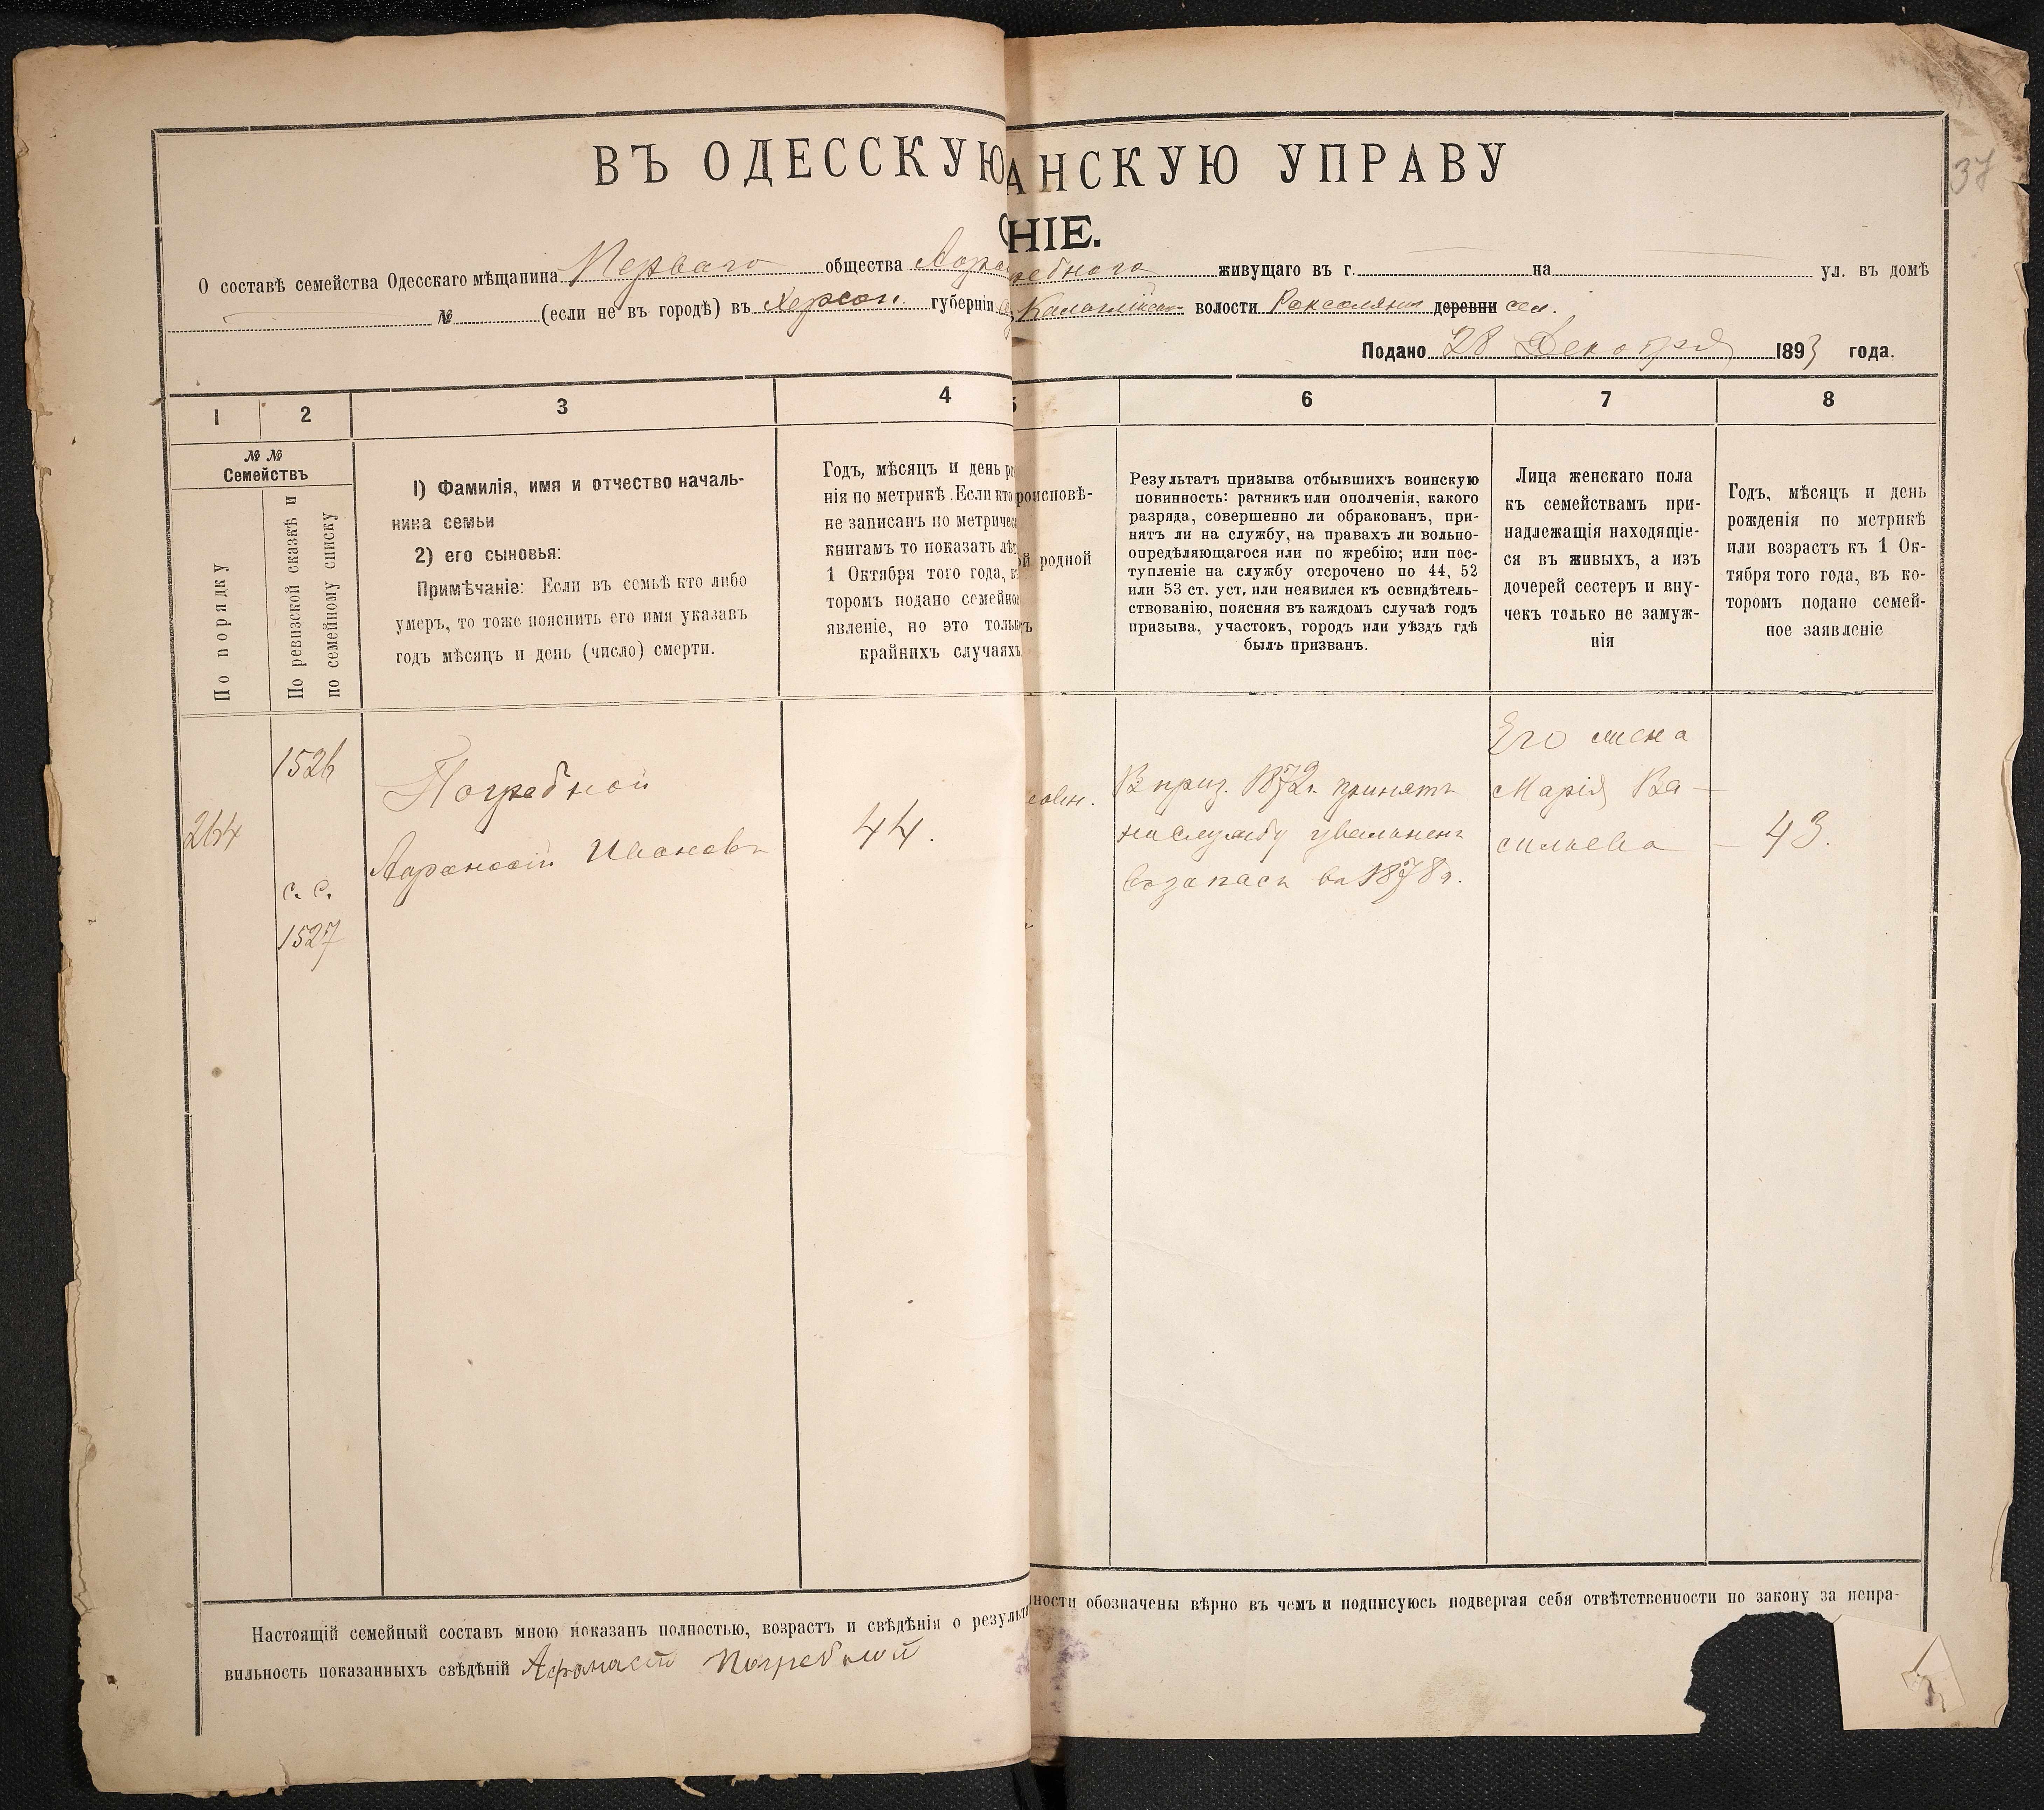 ВЪ ОДЕССКУЮ АНСКУЮ УПРАВУ
НІЕ.
37
О составѣ семейства Одесскаго мѣщанина Перваго общества Аѳана ребного живущаго въ г. на ул. въ домѣ
№ (если не въ городѣ) въ Херсон. губерніи волости Роксоляны деревни сел.
Подано 28 Декабря 1893 года.
1 2 3 4 5 6 7 8
№ №
Семействъ
По порядку
По ревизской сказкѣ и
по семейному списку
1) Фамилія, имя и отчество началь-
ника семьи
2) его сыновья:
Примѣчаніе: Если въ семьѣ кто либо
умеръ, то тоже пояснить его имя указавъ
годъ мѣсяцъ и день (число) смерти.
Годъ, мѣсяцъ и день ро
нія по метрикѣ. Если кто
не записанъ по метричес
книгамъ то показать лѣт
1 Октября того года, въ
торомъ подано семейное
явленіе, но это только
крайнихъ случаяхъ
роисповѣ-
ой родной
ъ
Результатъ призыва отбывшихъ воинскую
повинность: ратникъ или ополченія, какого
разряда, совершенно ли обракованъ, при-
нятъ ли на службу, на правахъ ли вольно-
опредѣляющагося или по жребію; или пос-
тупленіе на службу отсрочено по 44, 52
или 53 ст. уст, или неявился къ освидѣтель-
ствованію, поясняя въ каждомъ случаѣ годъ
призыва, участокъ, городъ или уѣздъ гдѣ
былъ призванъ.
Лица женскаго пола
къ семействамъ при-
надлежащія находящіе-
ся въ живыхъ, а изъ
дочерей сестеръ и вну-
чекъ только не замуж-
нія
Годъ, мѣсяцъ и день
рожденія по метрикѣ
или возрастъ къ 1 Ок-
тября того года, въ ко-
торомъ подано семей-
ное заявленіе
264
1526
с. с.
1527
Погребной
Афанасій Ивановъ
44.
В приз. 1872г. принятъ
на службу уволенъ
въ запасъ въ 1878г.
Его жена
Марія Ва-
сильева
43.
Настоящій семейный составъ мною показанъ полностью, возрастъ и свѣдѣнія о результа ности обозначены вѣрно въ чемъ и подписуюсь подвергая себя отвѣтственности по закону за непра-
вильность показанныхъ свѣдѣній Афанасій Погребной